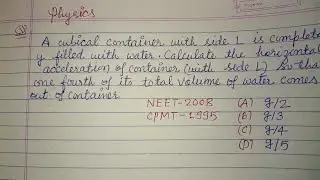 Physics
Q3) A cubical container with side L is complete
y filled with water. Calculate the horizontal
acceleration of container (with side L) so that
one fourth of its total volume of water comes
out of container
NEET-2008 (A) g/2
CPMT-1995 (B) g/3
(C) g/4
(D) g/5